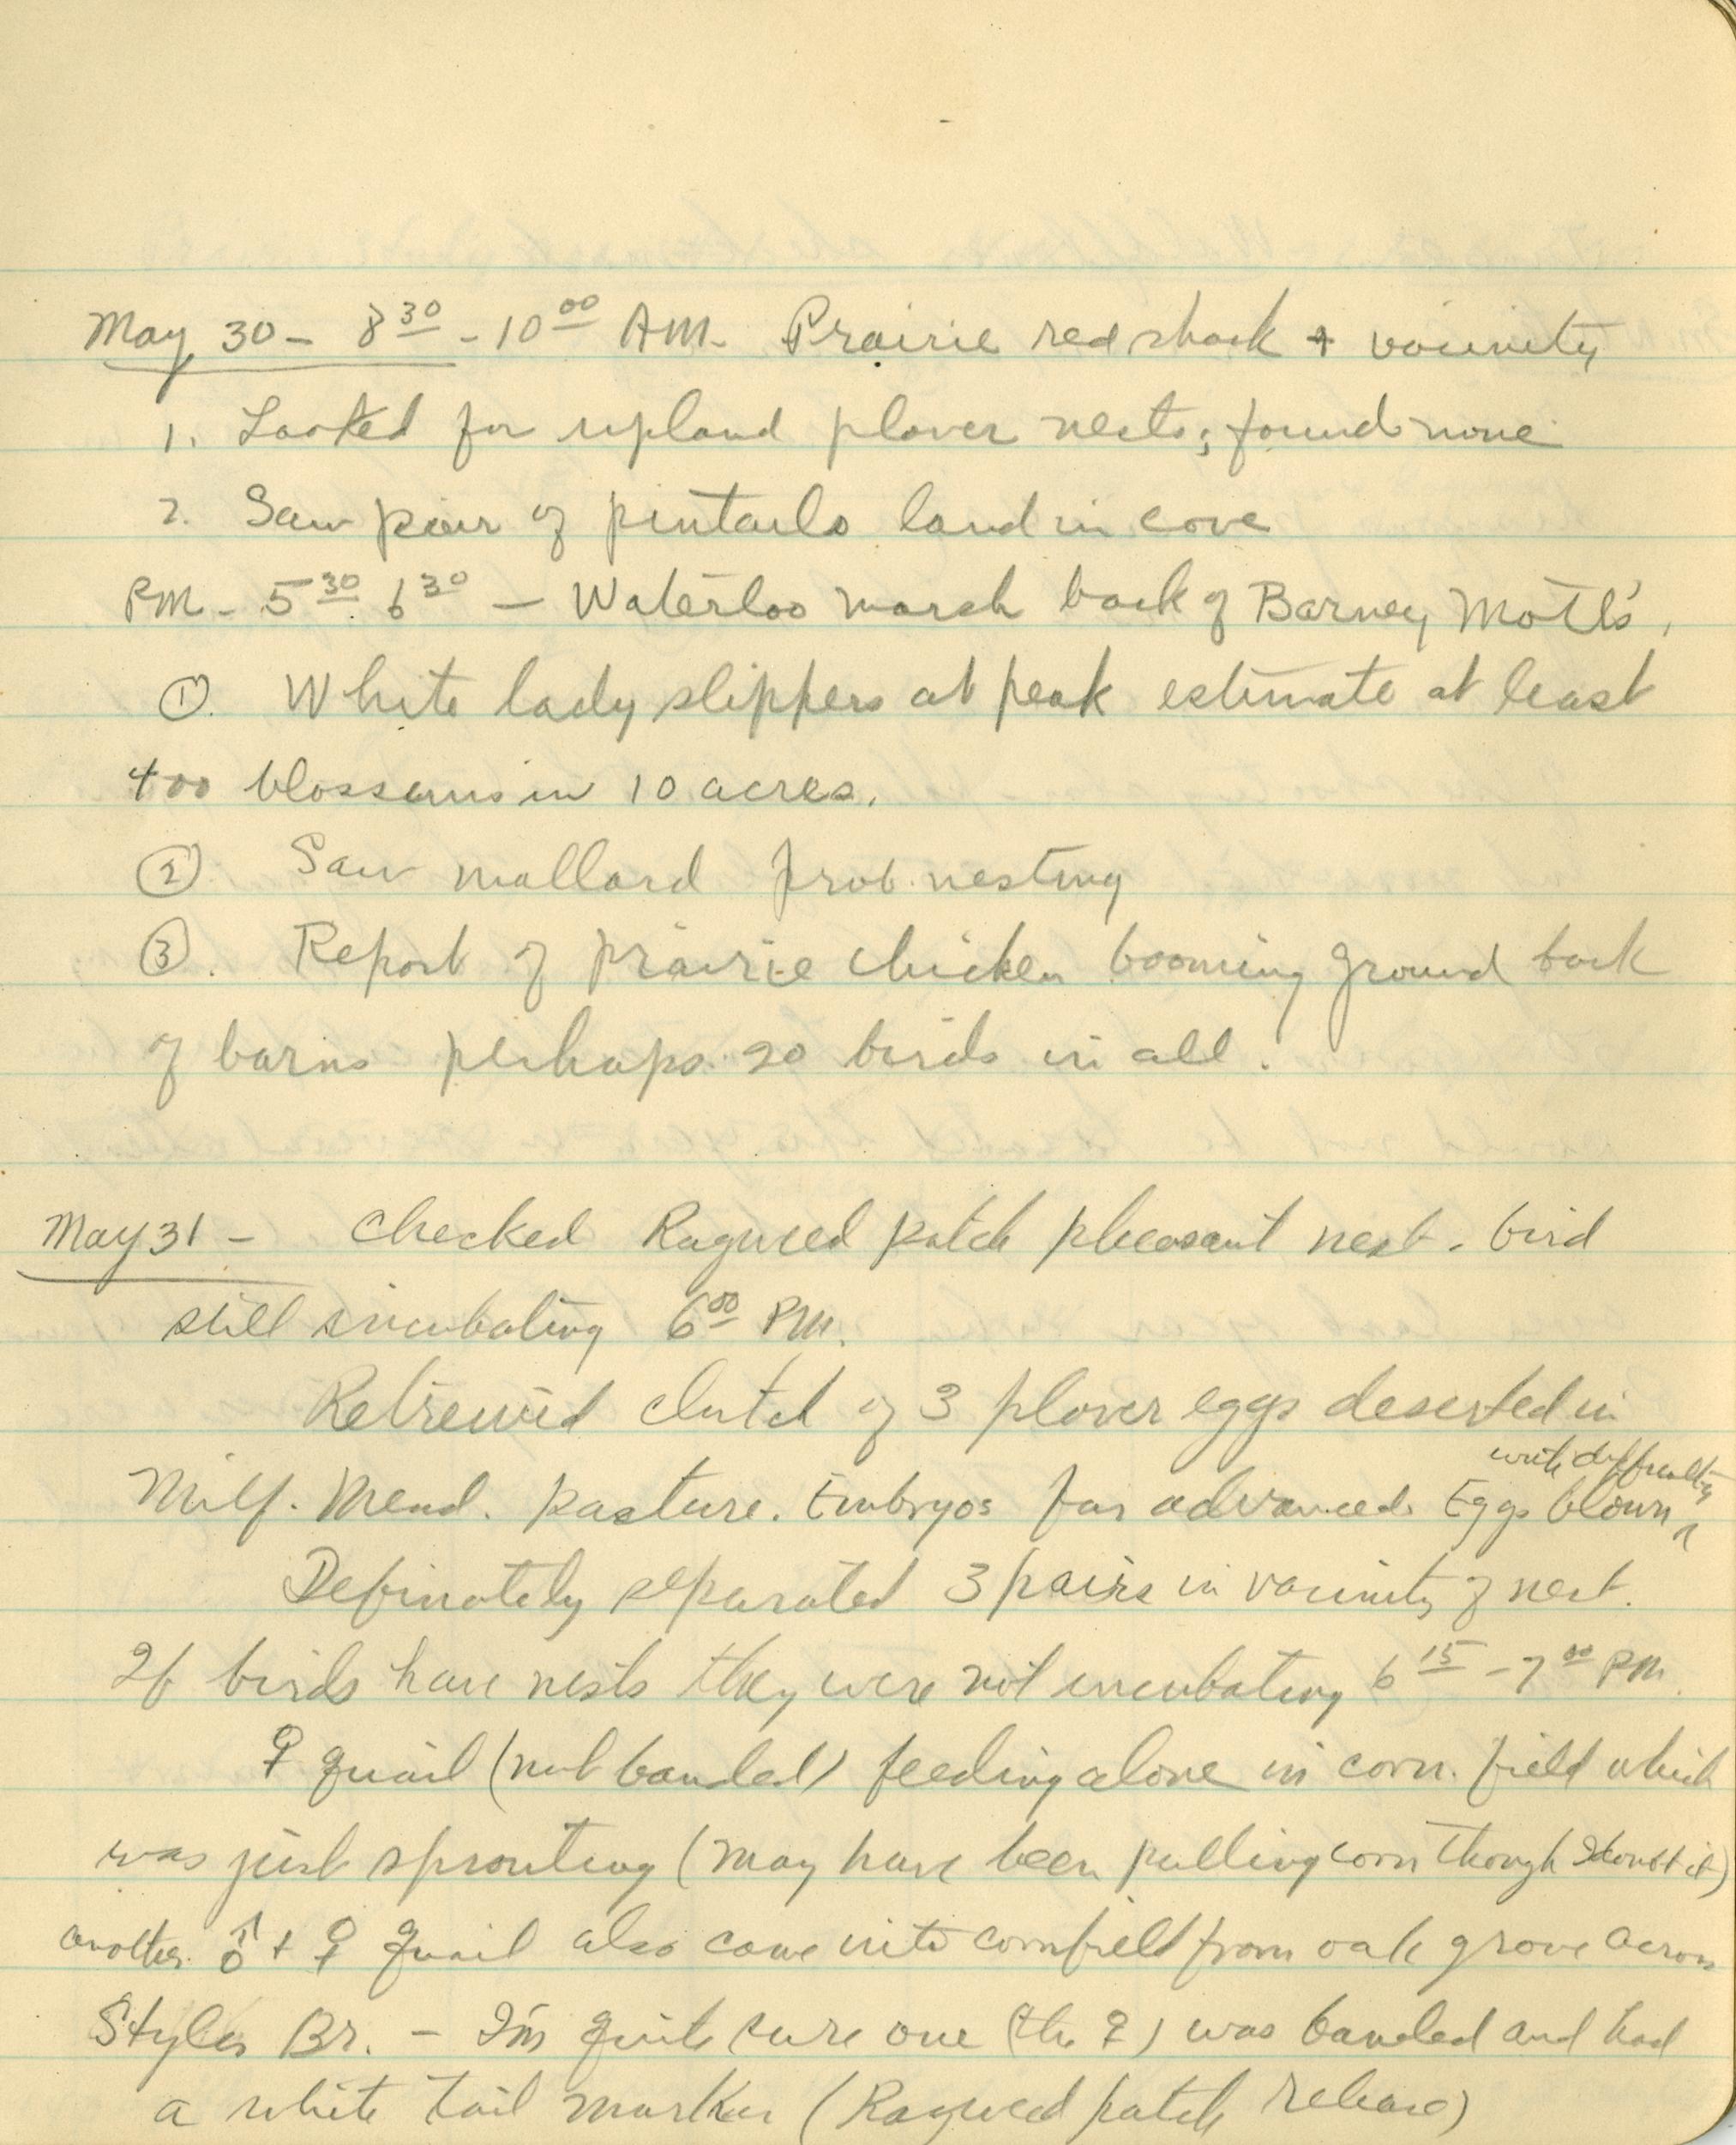 May 30 - 8 30 - 10 00 AM. Prairie red shack + vacinity
1. Looked for upland plover nests; found none
2. Saw pair of pintails land in cove
PM - 5 30 6 30 - Waterloo marsh back of Barney Motl's.
① White lady slippers at peak estimate at least
400 blossoms in 10 acres.
② Saw mallard prob. nesting
③. Report of prairie chicken booming ground back
of barns perhaps 20 birds in all.
May 31 - Checked Ragweed patch pheasant nest. bird
still incubating 6 00 PM.
Retreived clutch of 3 plover eggs deserted in
with difficulty
Milf. Mead. pasture. Embryos far advanced. Eggs blown ^
Definately separated 3 pairs in vacinity of nest.
If birds have nests they were not incubating 6 15 - 7 00 PM.
♀ quail (not banded) feeding alone in corn. field which
was just sprouting (may have been pulling corn though I doubt it)
another ♂ + ♀ quail also came into cornfield from oak grove across
Styles Br. - I'm quite sure one (the ♀) was banded and had
a white tail marker (Ragweed patch release)